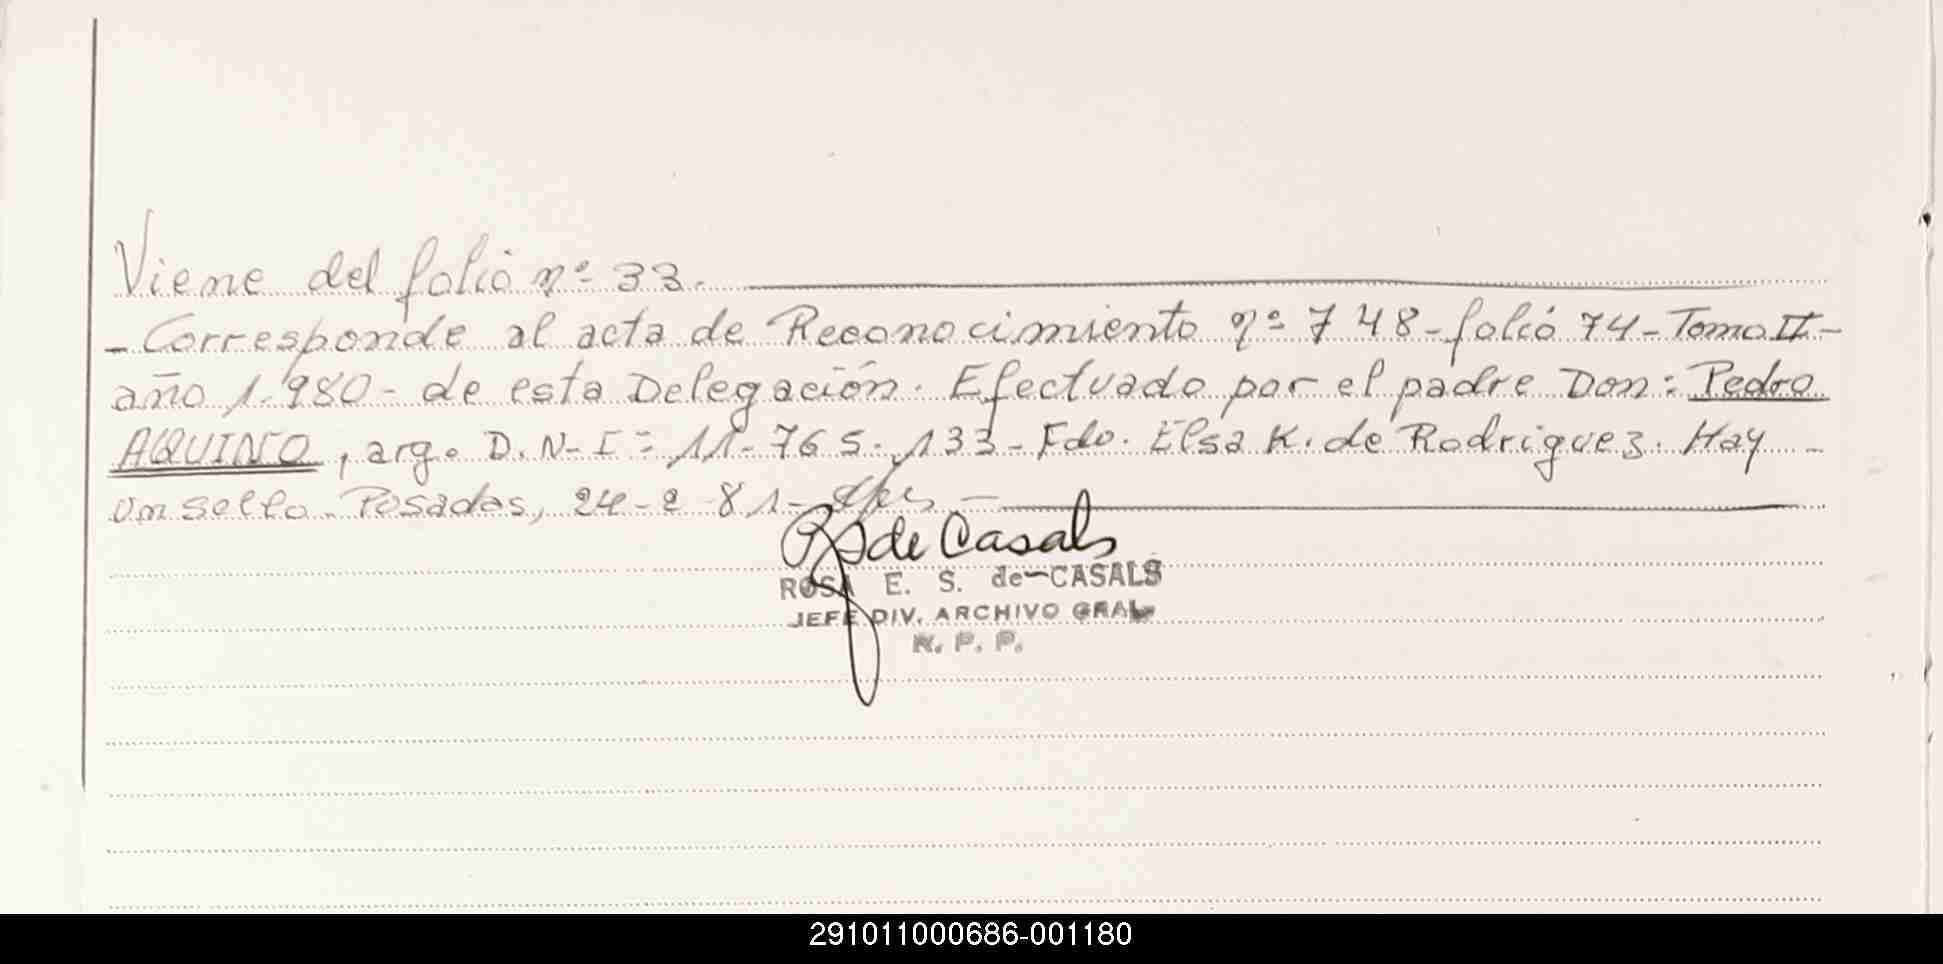 Viene del folio nº 33.
- Corresponde al acta de Reconocimiento nº 748 - folio 74 - Tomo II -
año 1.980 - de esta Delegación. Efectuado por el padre Don: Pedro
AQUINO, arg. D.N-I= 11-765.133 - Fdo. Elsa K. de Rodriguez. Hay -
un sello. Posadas, 24-2-81 -
de Casals
ROSA E. S. de CASALS
JEFE DIV. ARCHIVO GRAL
R. P. P.
291011000686-001180